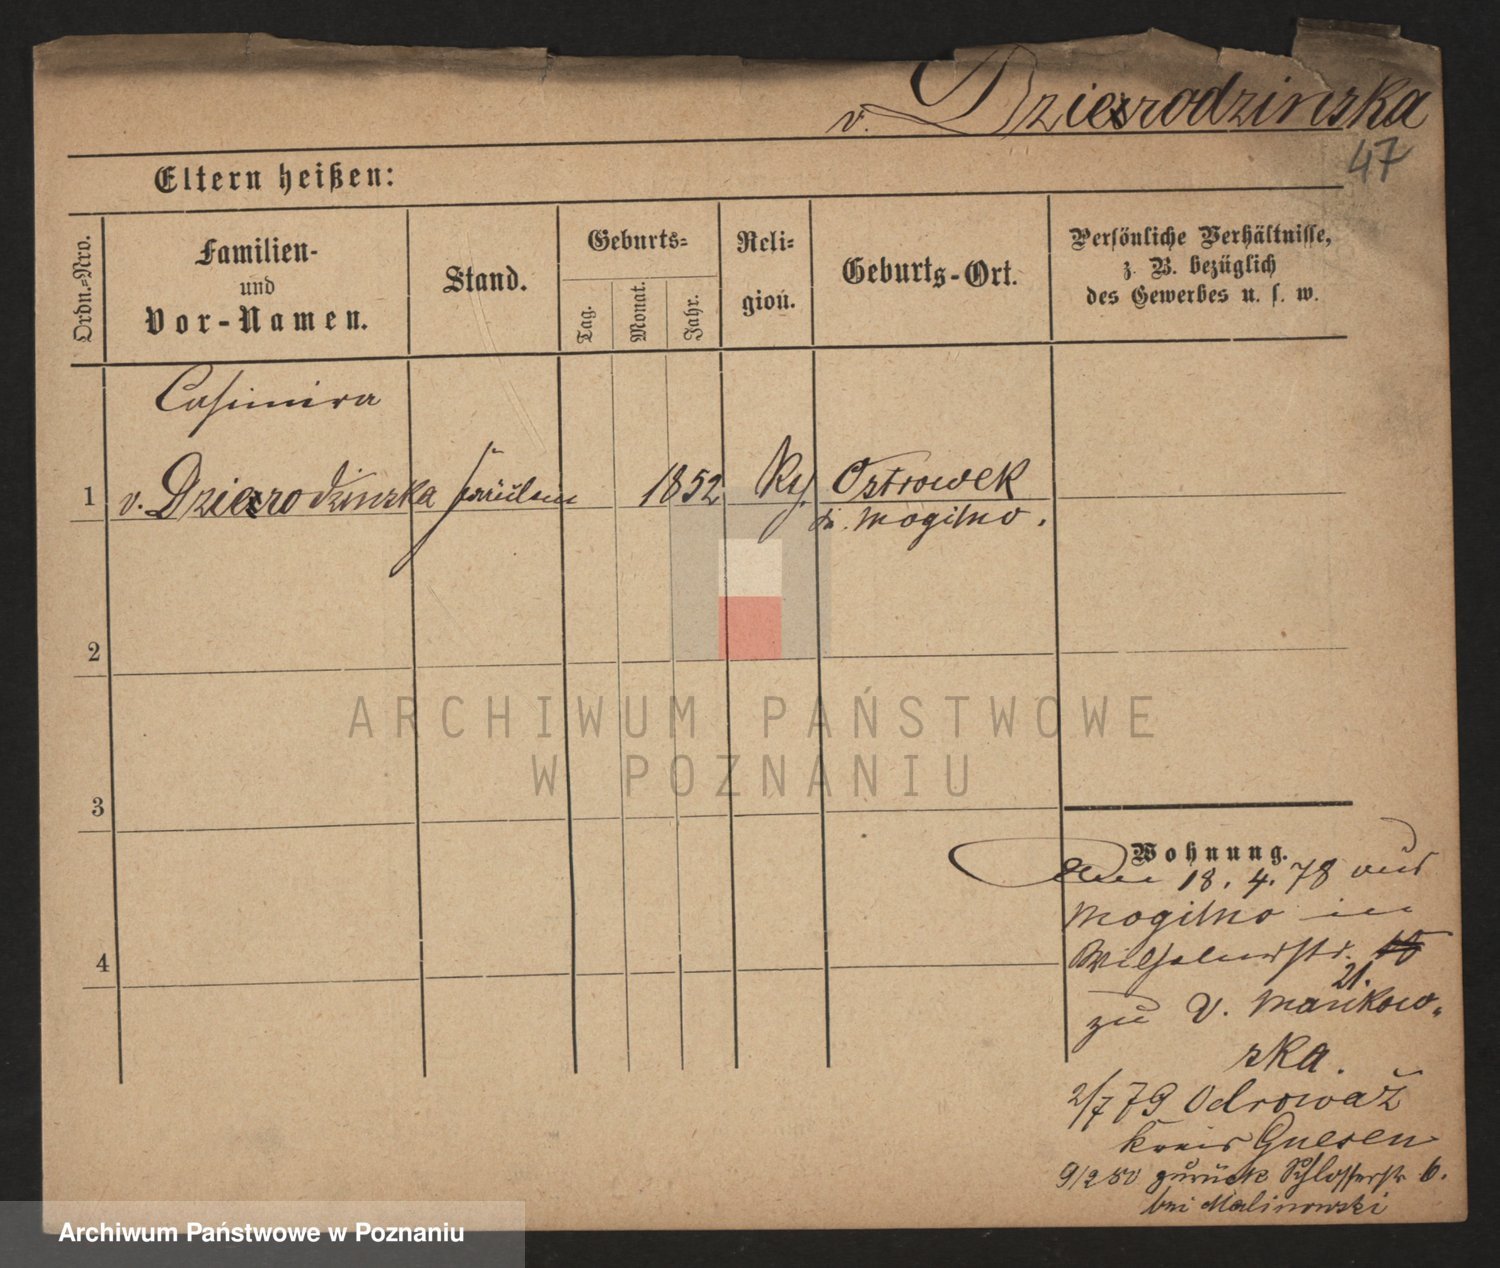 v. Dzierodzinska
47
Eltern heißen:
Ordn.-Nro.
Familien-
und
Vor-Namen.
Stand.
Geburts-
Tag.
Monat.
Jahr.
Reli-
gion.
Geburts-Ort.
Persönliche Verhältnisse,
z. B. bezüglich
des Gewerbes u. s. w.
Casimira
1 v. Dzierodzinska Fräulein 1852 Ostrowek
Mogilno.
2
3
4
Wohnung.
18. 4. 78 aus
Mogilno in
Wilhelmstr.
21.
zu V. Mankow-
ska.
2/7 79 Odrowaž
Kreis Gnesen
9/2 80 zurück Schlosserstr 6.
bei Malinowski
ARCHIWUM PAŃSTWOWE
W POZNANIU
Archiwum Państwowe w Poznaniu